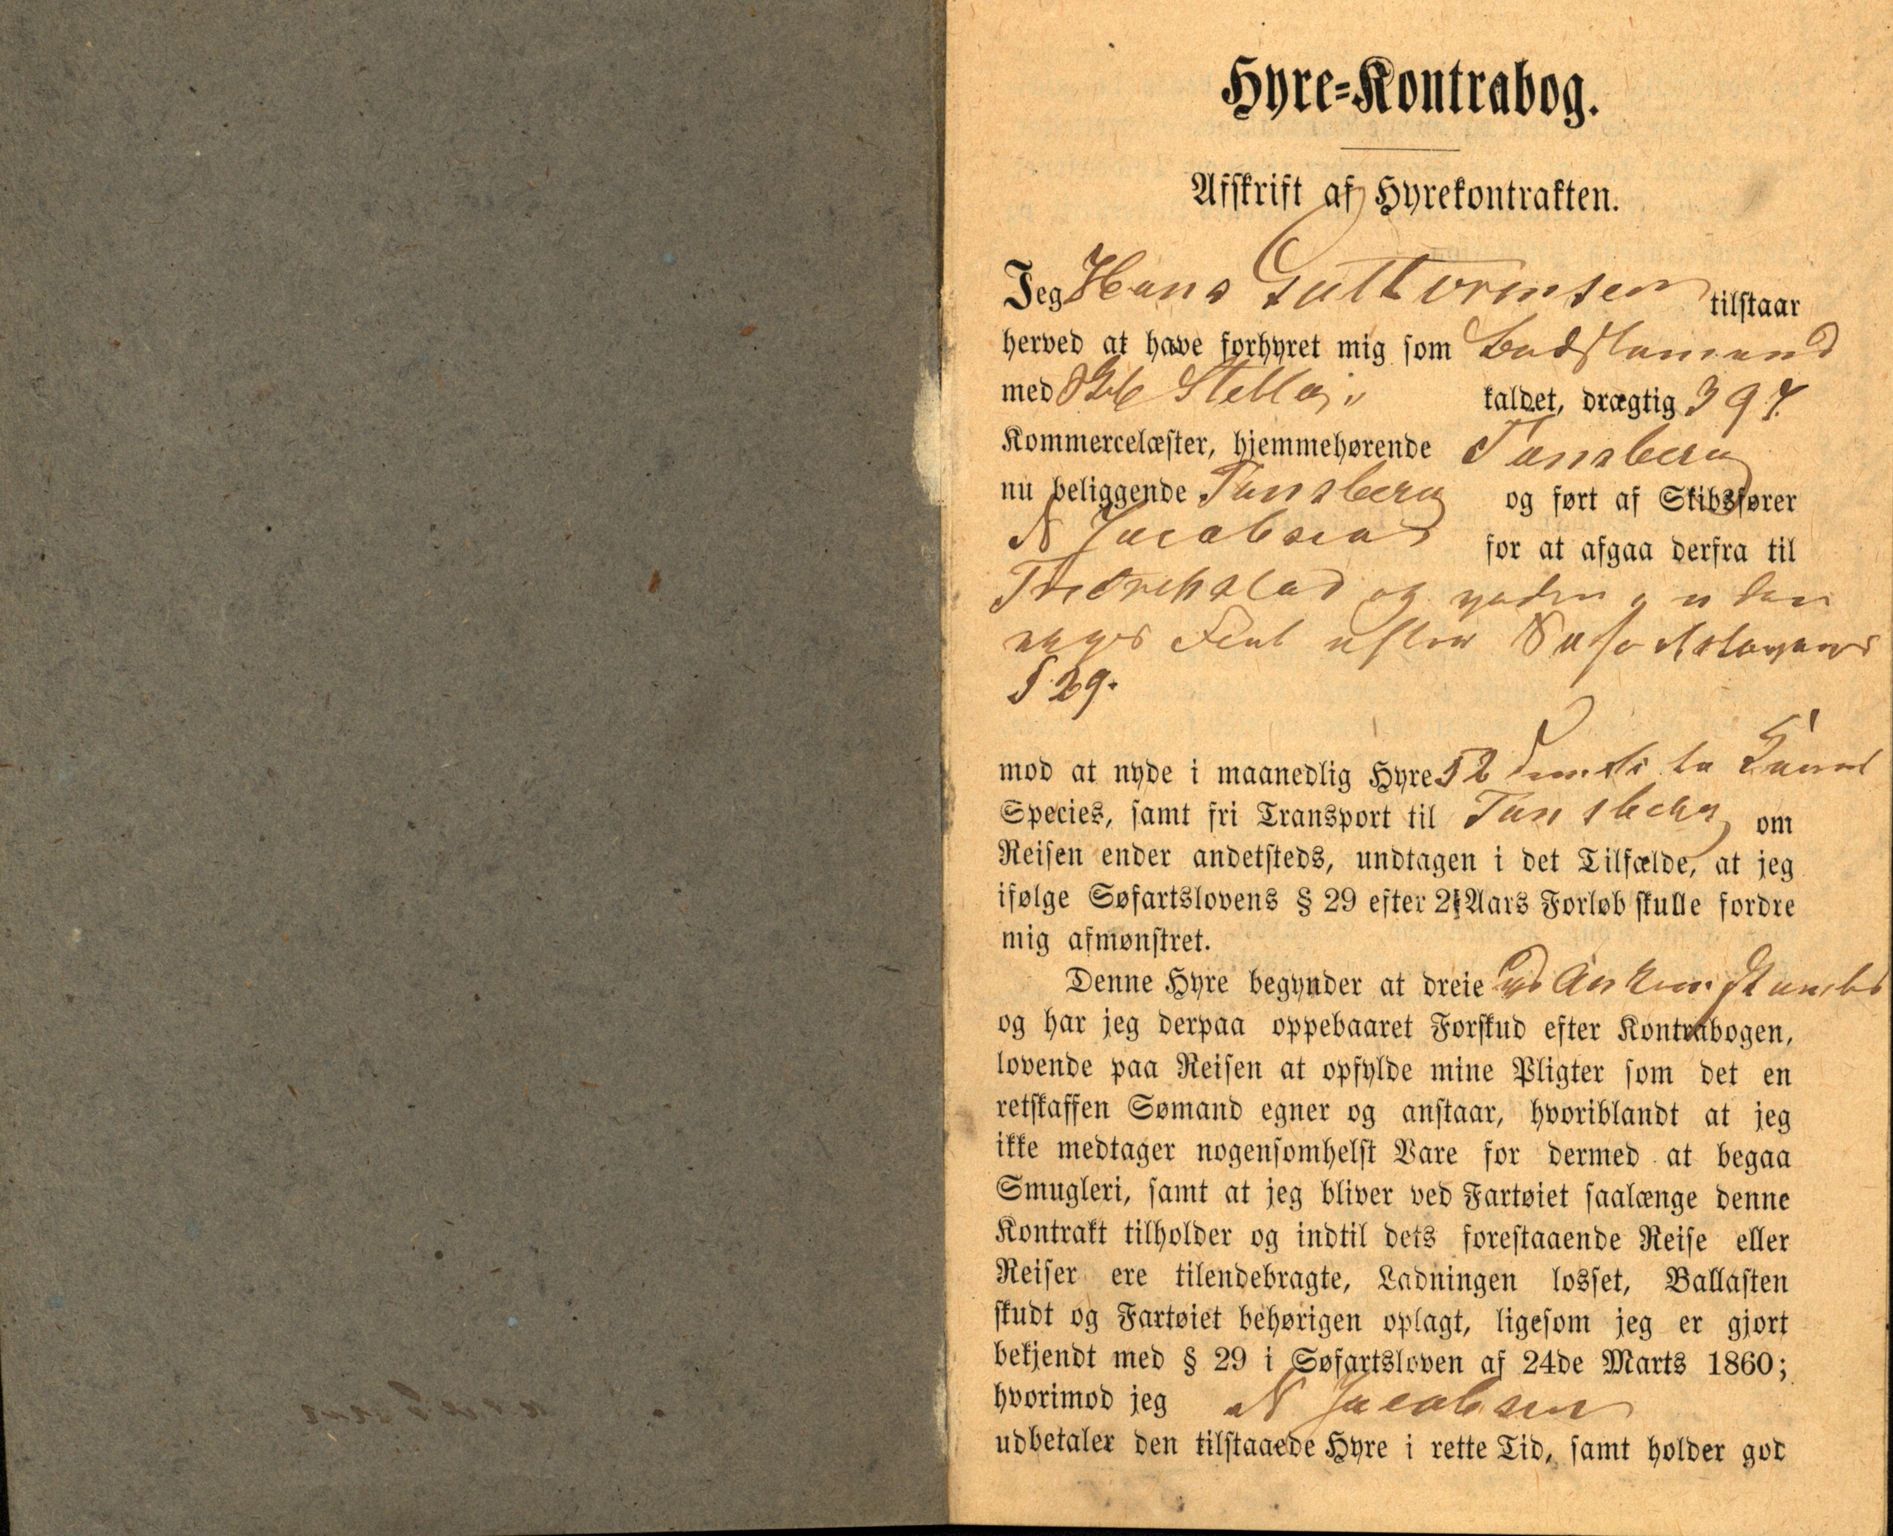 Hyre-Kontrabog.
Afskrift af Hyrekontrakten.
Jeg Hans Guttormsen tilstaar
herved at have forhyret mig som Badstamand
med Skb Stella kaldet, drægtig 397.
Kommercelæster, hjemmehørende Tønsberg
nu beliggende Tønsberg og ført af Skibsfører
N Jacobsen for at afgaa derfra til
Fredrikstad og efter
§ 29.
mod at nyde i maanedlig Hyre 52 to Kroner
Species, samt fri Transport til Tønsberg om
Reisen ender andetsteds, undtagen i det Tilfælde, at jeg
ifølge Søfartslovens § 29 efter 2½ Aars Forløb skulle fordre
mig afmønstret.
Denne Hyre begynder at dreie ved Ankomst
og har jeg derpaa oppebaaret Forskud efter Kontrabogen,
lovende paa Reisen at opfylde mine Pligter som det en
retskaffen Sømand egner og anstaar, hvoriblandt at jeg
ikke medtager nogensomhelst Vare for dermed at begaa
Smugleri, samt at jeg bliver ved Fartøiet saalænge denne
Kontrakt tilholder og indtil dets forestaaende Reise eller
Reiser ere tilendebragte, Ladningen losset, Ballasten
skudt og Fartøiet behørigen oplagt, ligesom jeg er gjort
bekjendt med § 29 i Søfartsloven af 24de Marts 1860;
hvorimod jeg N Jacobsen
udbetaler den tilstaaede Hyre i rette Tid, samt holder god